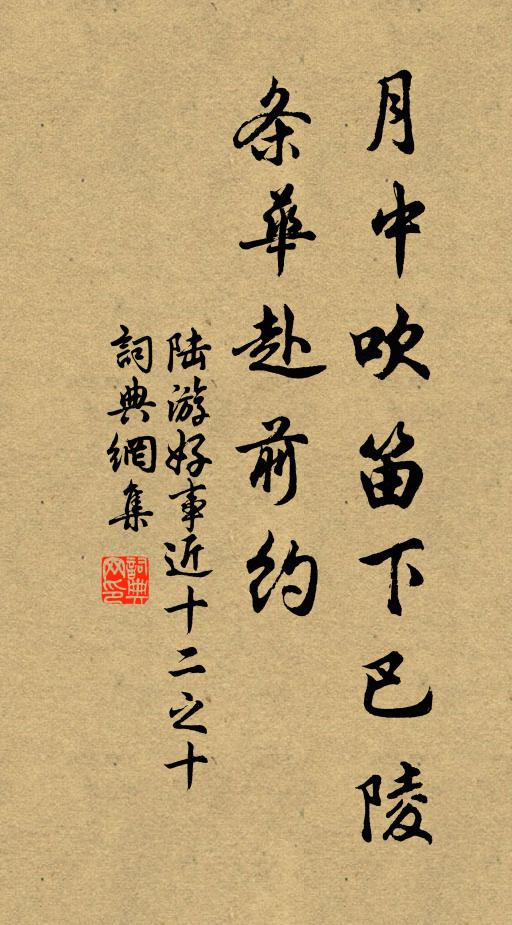 月中吹笛下巴陵
条華赴前约
陆游好事近十二之十
詞典網集
詞典網印